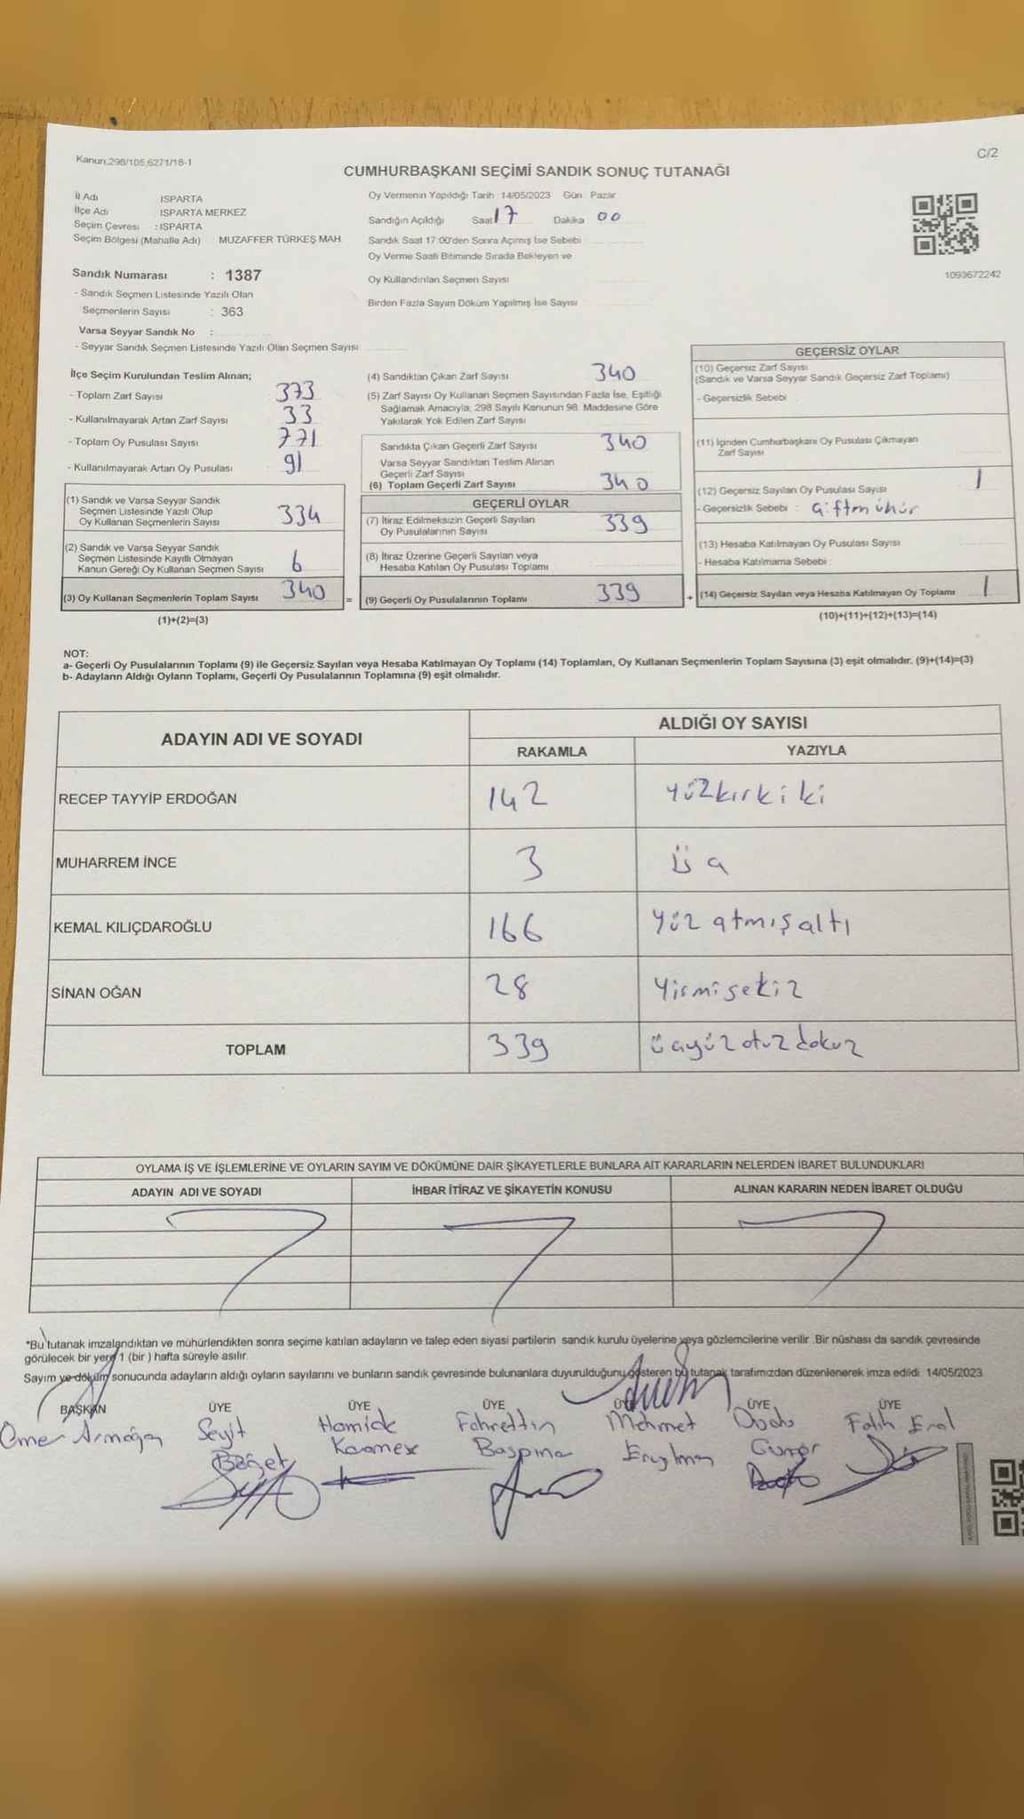 Kanun,298/105,6271/18-1
C/2
CUMHURBAŞKANI SEÇİMİ SANDIK SONUÇ TUTANAĞI
İl Adı ISPARTA
İlçe Adı ISPARTA MERKEZ
Seçim Çevresi :ISPARTA
Seçim Bölgesi (Mahalle Adı) MUZAFFER TÜRKEŞ MAH
Sandık Numarası : 1387
- Sandık Seçmen Listesinde Yazılı Olan
Seçmenlerin Sayısı : 363
Varsa Seyyar Sandık No :
- Seyyar Sandık Seçmen Listesinde Yazılı Olan Seçmen Sayısı
Oy Vermenin Yapıldığı Tarih :14/05/2023 Gün Pazar
Sandığın Açıldığı Saat 17 Dakika 00
Sandık Saat 17:00'den Sonra Açımış İse Sebebi
Oy Verme Saati Bitiminde Sırada Bekleyen ve
Oy Kullandırılan Seçmen Sayısı
Birden Fazla Sayım Döküm Yapılmış İse Sayısı
1093672242
İlçe Seçim Kurulundan Teslim Alınan;
- Toplam Zarf Sayısı 373
- Kullanılmayarak Artan Zarf Sayısı 33
- Toplam Oy Pusulası Sayısı 771
- Kullanılmayarak Artan Oy Pusulası 91
(1) Sandık ve Varsa Seyyar Sandık
Seçmen Listesinde Yazılı Olup
Oy Kullanan Seçmenlerin Sayısı 334
(2) Sandık ve Varsa Seyyar Sandık
Seçmen Listesinde Kayıtlı Olmayan
Kanun Gereği Oy Kullanan Seçmen Sayısı 6
(3) Oy Kullanan Seçmenlerin Toplam Sayısı 340
(1)+(2)=(3)
=
(4) Sandıktan Çıkan Zarf Sayısı 340
(5) Zarf Sayısı Oy Kullanan Seçmen Sayısından Fazla İse, Eşitliği
Sağlamak Amacıyla, 298 Sayılı Kanunun 98. Maddesine Göre
Yakılarak Yok Edilen Zarf Sayısı
Sandıkta Çıkan Geçerli Zarf Sayısı 340
Varsa Seyyar Sandıktan Teslim Alınan
Geçerli Zarf Sayısı
(6) Toplam Geçerli Zarf Sayısı 340
GEÇERLİ OYLAR
(7) İtiraz Edilmeksizin Geçerli Sayılan
Oy Pusulalarının Sayısı 339
(8) İtiraz Üzerine Geçerli Sayılan veya
Hesaba Katılan Oy Pusulası Toplamı
(9) Geçerli Oy Pusulalarının Toplamı 339
+
GEÇERSİZ OYLAR
(10) Geçersiz Zarf Sayısı
(Sandık ve Varsa Seyyar Sandık Geçersiz Zarf Toplamı)
- Geçersizlik Sebebi
(11) İçinden Cumhurbaşkanı Oy Pusulası Çıkmayan
Zarf Sayısı
(12) Geçersiz Sayılan Oy Pusulası Sayısı 1
- Geçersizlik Sebebi : çift mühür
(13) Hesaba Katılmayan Oy Pusulası Sayısı
- Hesaba Katılmama Sebebi
(14) Geçersiz Sayılan veya Hesaba Katılmayan Oy Toplamı 1
(10)+(11)+(12)+(13)=(14)
NOT:
a- Geçerli Oy Pusulalarının Toplamı (9) ile Geçersiz Sayılan veya Hesaba Katılmayan Oy Toplamı (14) Toplamları, Oy Kullanan Seçmenlerin Toplam Sayısına (3) eşit olmalıdır. (9)+(14)=(3)
b- Adayların Aldığı Oyların Toplamı, Geçerli Oy Pusulalarının Toplamına (9) eşit olmalıdır.
ADAYIN ADI VE SOYADI
ALDIĞI OY SAYISI
RAKAMLA YAZIYLA
RECEP TAYYİP ERDOĞAN 142 yüzkırkiki
MUHARREM İNCE 3 üç
KEMAL KILIÇDAROĞLU 166 yüz atmışaltı
SİNAN OĞAN 28 yirmisekiz
TOPLAM 339 üçyüzotuzdokuz
OYLAMA İŞ VE İŞLEMLERİNE VE OYLARIN SAYIM VE DÖKÜMÜNE DAİR ŞİKAYETLERLE BUNLARA AİT KARARLARIN NELERDEN İBARET BULUNDUKLARI
ADAYIN ADI VE SOYADI İHBAR İTİRAZ VE ŞİKAYETİN KONUSU ALINAN KARARIN NEDEN İBARET OLDUĞU
*Bu tutanak imzalandıktan ve mühürlendikten sonra seçime katılan adayların ve talep eden siyasi partilerin sandık kurulu üyelerine veya gözlemcilerine verilir. Bir nüshası da sandık çevresinde
görülecek bir yere 1 (bir ) hafta süreyle asılır.
Sayım ve döküm sonucunda adayların aldığı oyların sayılarını ve bunların sandık çevresinde bulunanlara duyurulduğunu gösteren bu tutanak tarafımızdan düzenlenerek imza edildi. 14/05/2023
BAŞKAN ÜYE ÜYE ÜYE ÜYE ÜYE ÜYE
Ömer Armağan Seyit Hamide Fahrettin Mehmet Fatih Eral
Başpınar